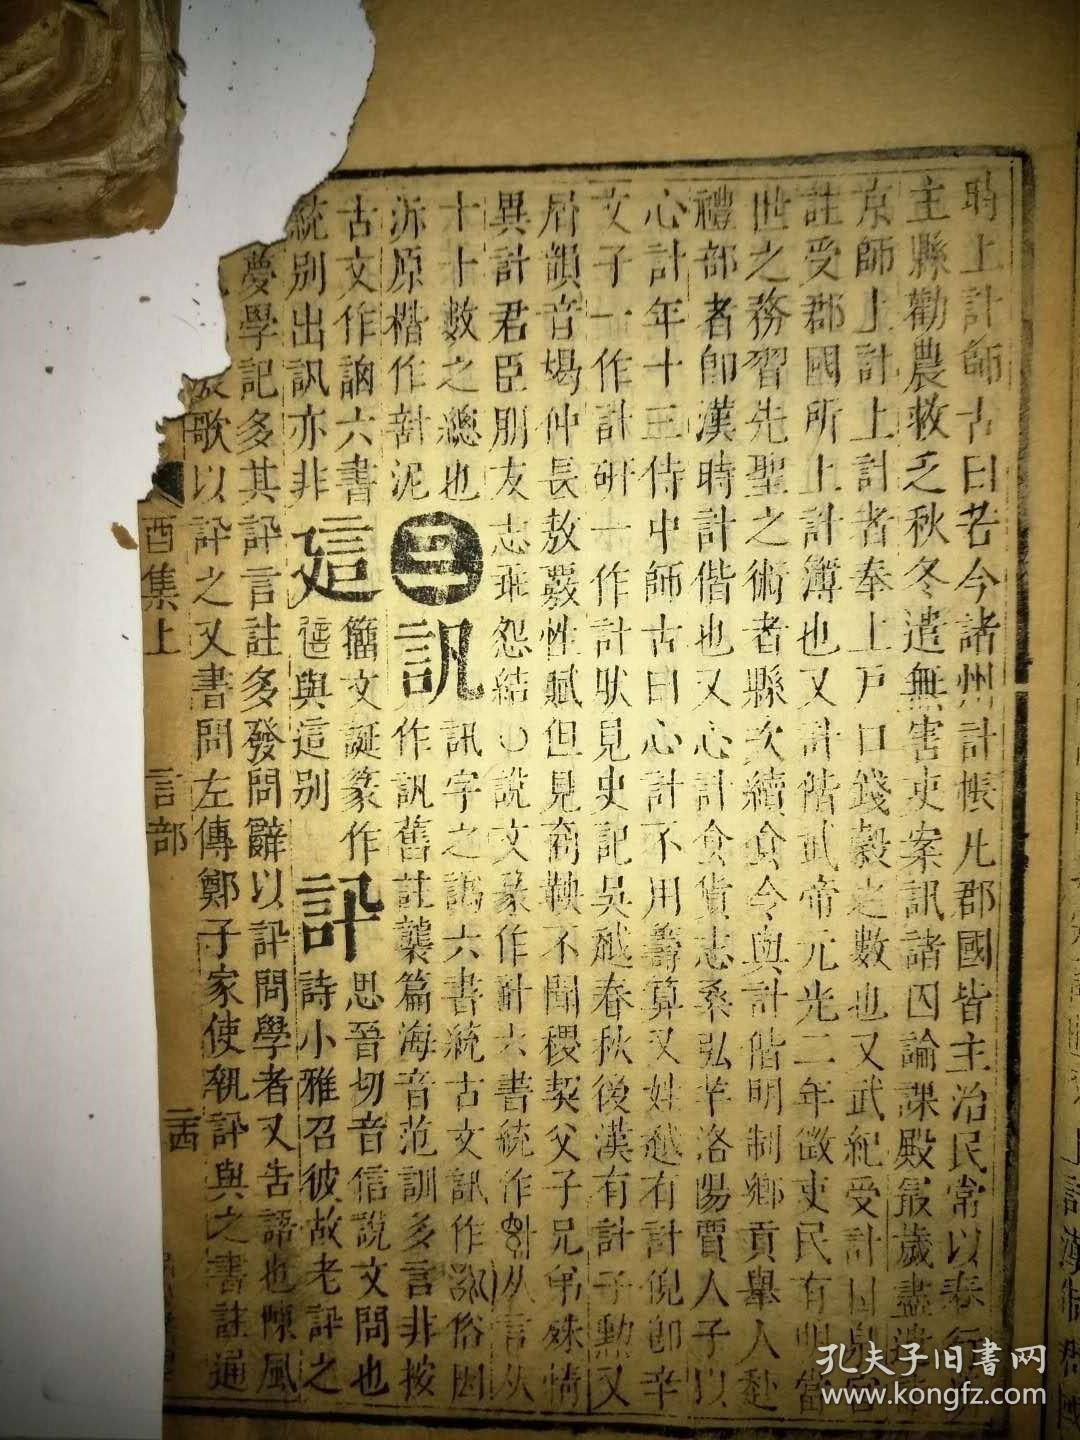 時上計師古曰若今諸州計帳凡郡國皆主治民常以春行所
主縣勸農救乏秋冬遣無害吏案訊諸囚論課殿最歲盡遣
京師上計上計者奉上戶口錢穀之數也又武紀受計
註受郡國所上計簿也又計偕武帝元光二年徵吏民有明當
世之務習先聖之術者縣次續食令與計偕明制鄉貢舉人赴
禮部者卽漢時計偕也又心計食貨志桑弘羊洛陽賈人子以
心計年十三侍中師古曰心計不用籌算又姓越有計倪卽辛
文子一作計硏一作計然見史記吳越春秋後漢有計子勳又
屑韻音竭仲長敖覈性賦但見商鞅不聞稷契父子兄弟殊情
異計君臣朋友志乖怨結〇說文篆作計六書統作 从言从
十十數之總也
㊂
訊字之譌六書統古文訊作 俗因
泝原楷作 泥
訉
作訉舊註襲篇海音范訓多言非按
古文作 六書
籒文誕篆作
思晉切音信說文問也
統別出訊亦非
這
與這別
訊
詩小雅召彼故老訊之
夢學記多其訊言註多發問辭以訊問學者又吿語也陳風
歌以訊之又書問左傳鄭子家使執訊與之書註通
酉集上 言部 二百
孔夫子旧书网
www.kongfz.com